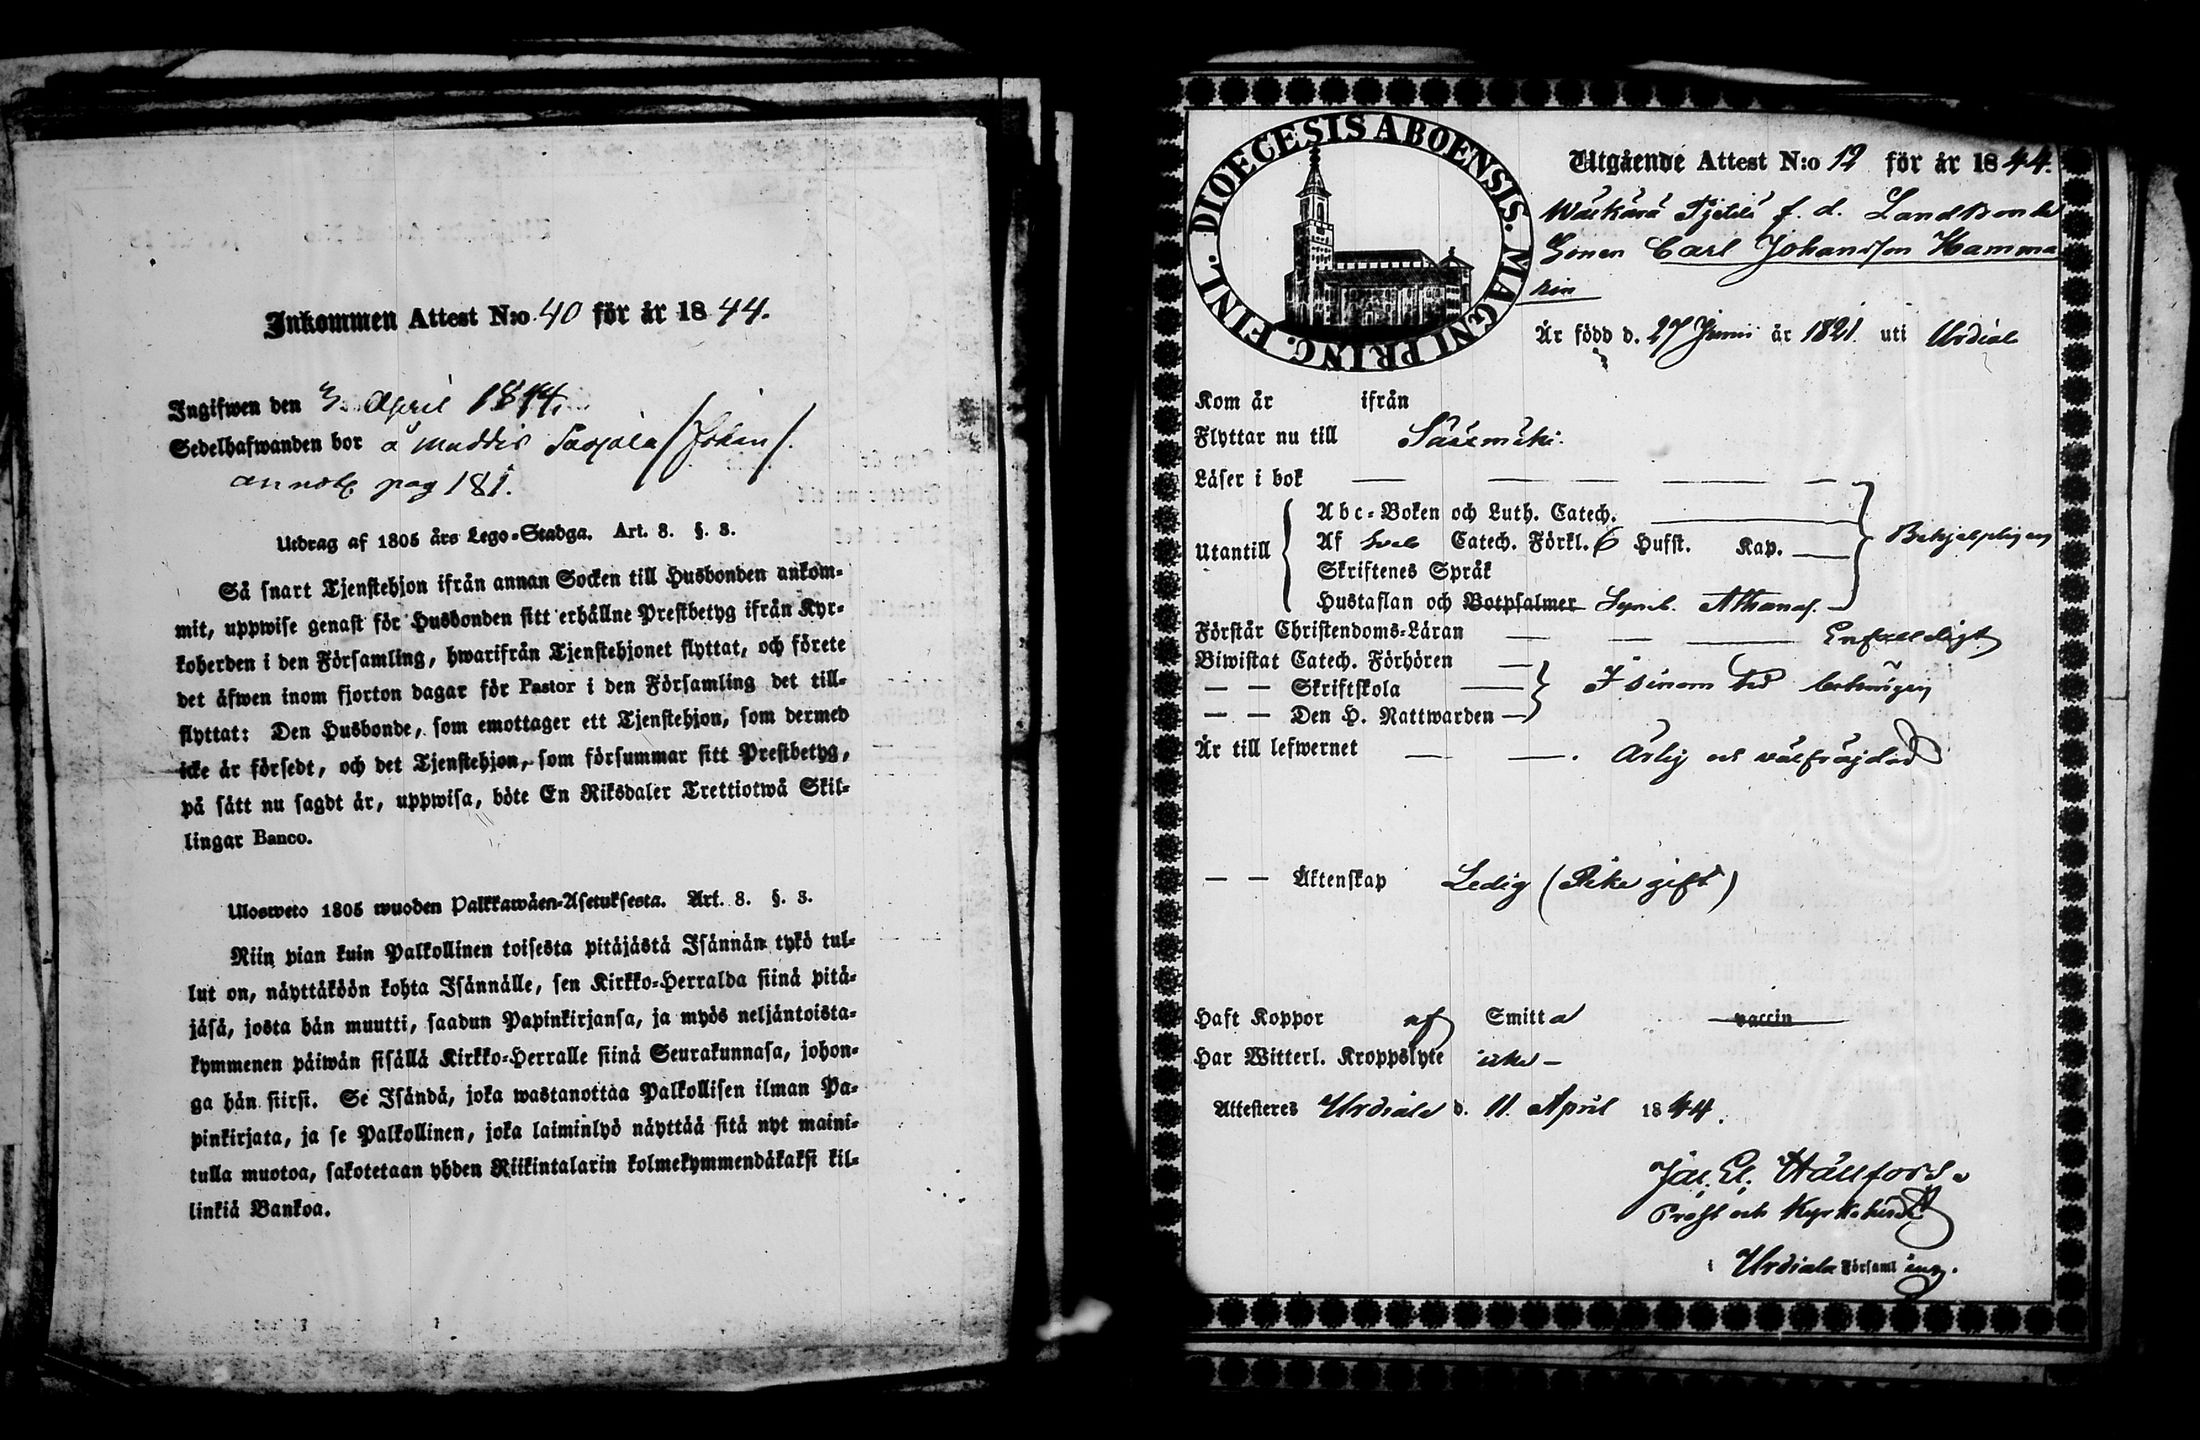 Inkommen Attest N:o 40 för år 1844.
Ingifwen den 3 April 1844.
Sedelhafwanden bor å
annot. pag 181.
Utdrag af 1805 års Lego-Stadga. Art. 8. §. 3.
Så snart Tjenstehjon ifrån annan Socken till Husbonden ankom-
mit, uppwise genast för Husbonden sitt erhållne Prestbetyg ifrån Kyr-
koherden i den Församling, hwarifrån Tjenstehjonet flyttat, och förete
det äfwen inom fjorton dagar för Pastor i den Församling det till-
flyttat: Den Husbonde, som emottager ett Tjenstehjon, som dermed
icke är försedt, och det Tjenstehjon, som försummar sitt Prestbetyg,
på sätt nu sagdt är, uppwisa, böte En Riksdaler Trettiotwå Skil-
lingar Banco.
Ulosweto 1805 wuoden Palkkawäen-Asetuksesta. Art. 8. §. 3.
Niin pian kuin Palkollinen toisesta pitäjästä Isännän tykö tul-
lut on, näyttäköön kohta Isännälle, sen Kirkko-Herralda siinä pitä-
jäsä, josta hän muutti, saadun Papinkirjansa, ja myös neljäntoista-
kymmenen päiwän sisällä Kirkko-Herralle siinä Seurakunnasa, johon-
ga hän siirsi. Se Isändä, joka wastanottaa Palkollisen ilman Pa-
pinkirjata, ja se Palkollinen, joka laiminlyö näyttää sitä nyt maini-
tulla muotoa, sakotetaan yhden Riikintalarin kolmekymmendäkaksi kil-
linkiä Bankoa.
DIOECESIS ABOENSIS. MAGNI PRINC. FINL.
Utgående Attest N:o 12 för år 1844.
f. d. Landbonde
Sonen Carl Johansson Hamma
rin
Är född d. 27 Junii år 1821. uti Urdiala
Kom år ifrån
Flyttar nu till Sääksmäki.
Läser i bok
Utantill
Abc-Boken och Luth. Catech.
Af Sveb Catech. Förkl. 6 Hufst. Kap.
Skriftenes Språk
Hustaflan och Botpsalmer Symb. Athanas.
Behjelpligen
Förstår Christendoms-Läran Enfaldigt
Biwistat Catech. Förhören
— — Skriftskola
— — Den H. Nattwarden
I sinom tid behörigen
Är till lefwernet Ärlig och välfräjdad
— — Äktenskap Ledig (Icke gift)
Haft Koppor af Smitta vaccin
Har Witterl. Kroppslyte icke —
Attesteres Urdiala d. 11 April 1844.
Jac. El. Hällfors
Prost och Kyrkoherde
i Urdiala Församling.